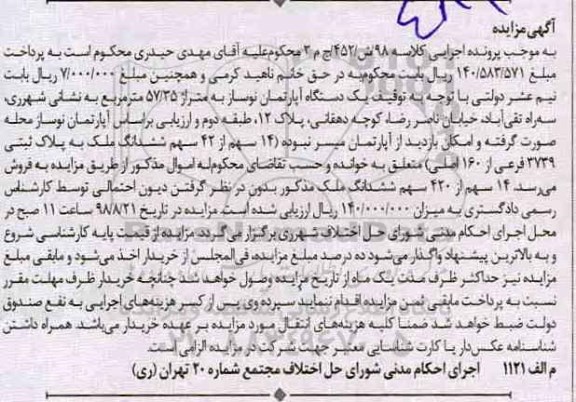 آگهی مزایده
به موجب پرونده اجرایی کلاسه ۹۸/ش/۴۵۲/ج م ۳ محکوم‌علیه آقای مهدی حیدری محکوم است به پرداخت
مبلغ ۱۴۰/۵۸۳/۵۷۱ ریال بابت محکوم‌به در حق خانم ناهید کرمی و همچنین مبلغ ۷/۰۰۰/۰۰۰ ریال بابت
نیم عشر دولتی با توجه به توقیف یک دستگاه آپارتمان نوساز به متراژ ۵۷/۳۵ مترمربع به نشانی شهرری،
سه‌راه تقی‌آباد، خیابان ناصر رضا، کوچه دهقانی، پلاک ۱۲، طبقه دوم و ارزیابی براساس آپارتمان نوساز محله
صورت گرفته و امکان بازدید از آپارتمان میسر نبوده (۱۴ سهم از ۴۲ سهم ششدانگ ملک به پلاک ثبتی
۳۷۳۹ فرعی از ۱۶۰ اصلی) متعلق به خوانده و حسب تقاضای محکوم‌له اموال مذکور از طریق مزایده به فروش
می‌رسد. ۱۴ سهم از ۴۲۰ سهم ششدانگ ملک مذکور بدون در نظر گرفتن دیون احتمالی توسط کارشناس
رسمی دادگستری به میزان ۱۴۰/۰۰۰/۰۰۰ ریال ارزیابی شده است. مزایده در تاریخ ۹۸۸/۲۱ ساعت ۱۱ صبح در
محل اجرای احکام مدنی شورای حل اختلاف شهرری برگزار می‌گردد. مزایده از قیمت پایه کارشناسی شروع
و به بالاترین پیشنهاد واگذار می‌شود ده درصد مبلغ مزایده، فی‌المجلس از خریدار اخذ می‌شود و مابقی مبلغ
مزایده نیز حداکثر ظرف مدت یک ماه از تاریخ مزایده وصول خواهد شد چنانچه خریدار ظرف مهلت مقرر
نسبت به پرداخت مابقی ثمن مزایده اقدام ننماید سپرده وی پس از کسر هزینه‌های اجرایی به نفع صندوق
دولت ضبط خواهد شد ضمنا کلیه هزینه‌های انتقال مورد مزایده بر عهده خریدار می‌باشد. همراه داشتن
شناسنامه عکس‌دار یا کارت شناسایی معتبر جهت شرکت در مزایده الزامی است.
م الف ۱۱۲۱ اجرای احکام مدنی شورای حل اختلاف مجتمع شماره ۲۰ تهران (ری)